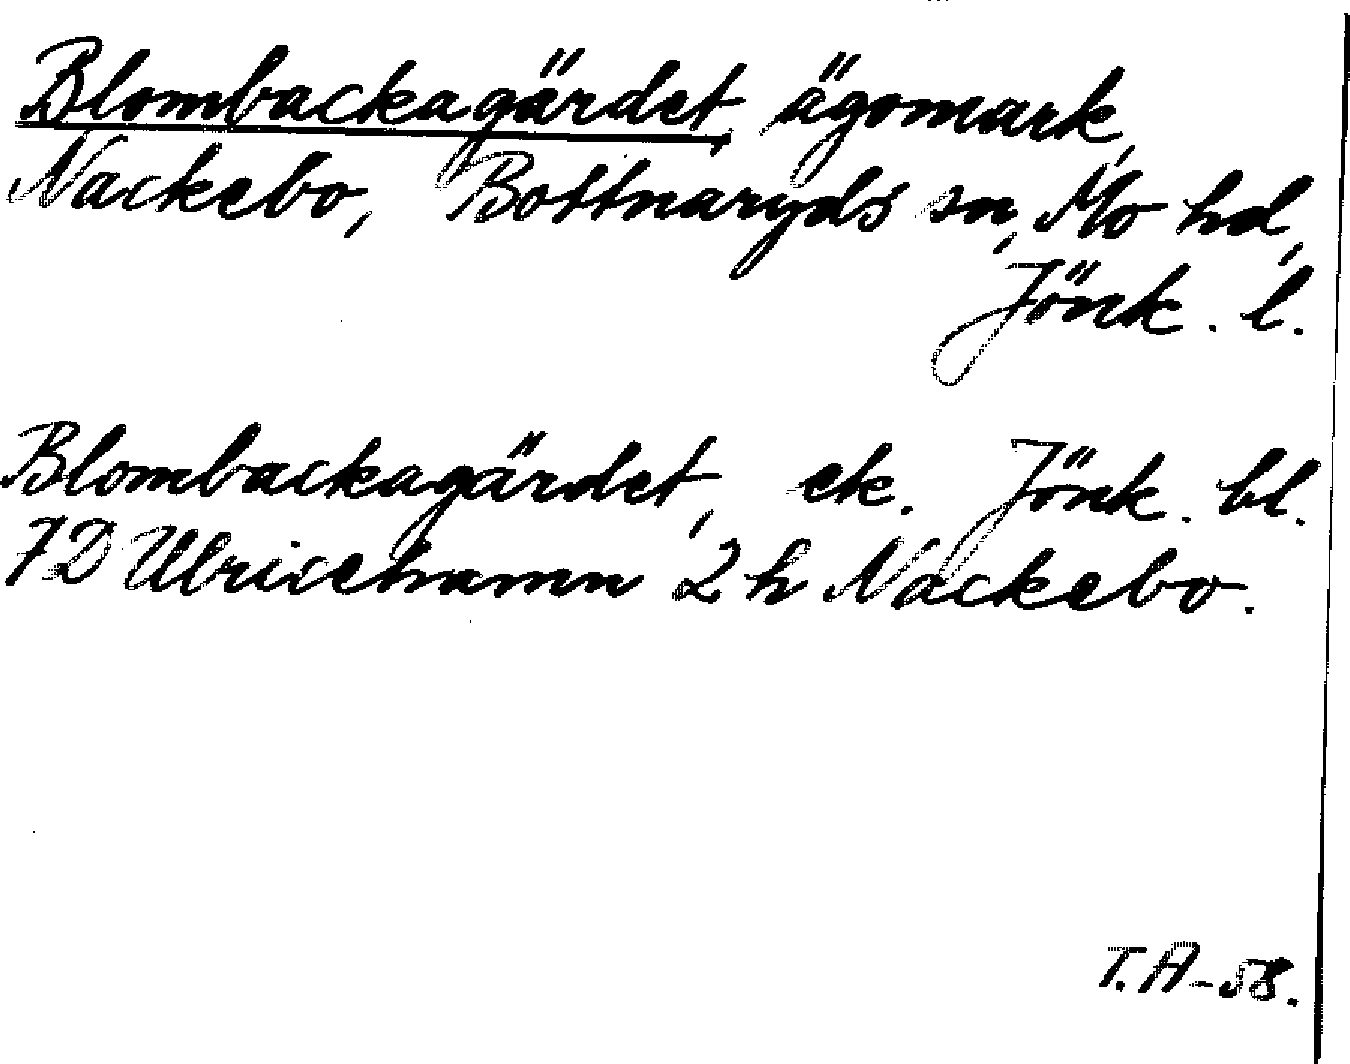 Blombackagärdet, ägomark,
Nackebo, Bottnaryds sn, Mo hd,
Jönk. l.
Blombackagärdet, ek. Jönk. bl.
7D Ulricehamn 2 h Nackebo.
T.A-58.